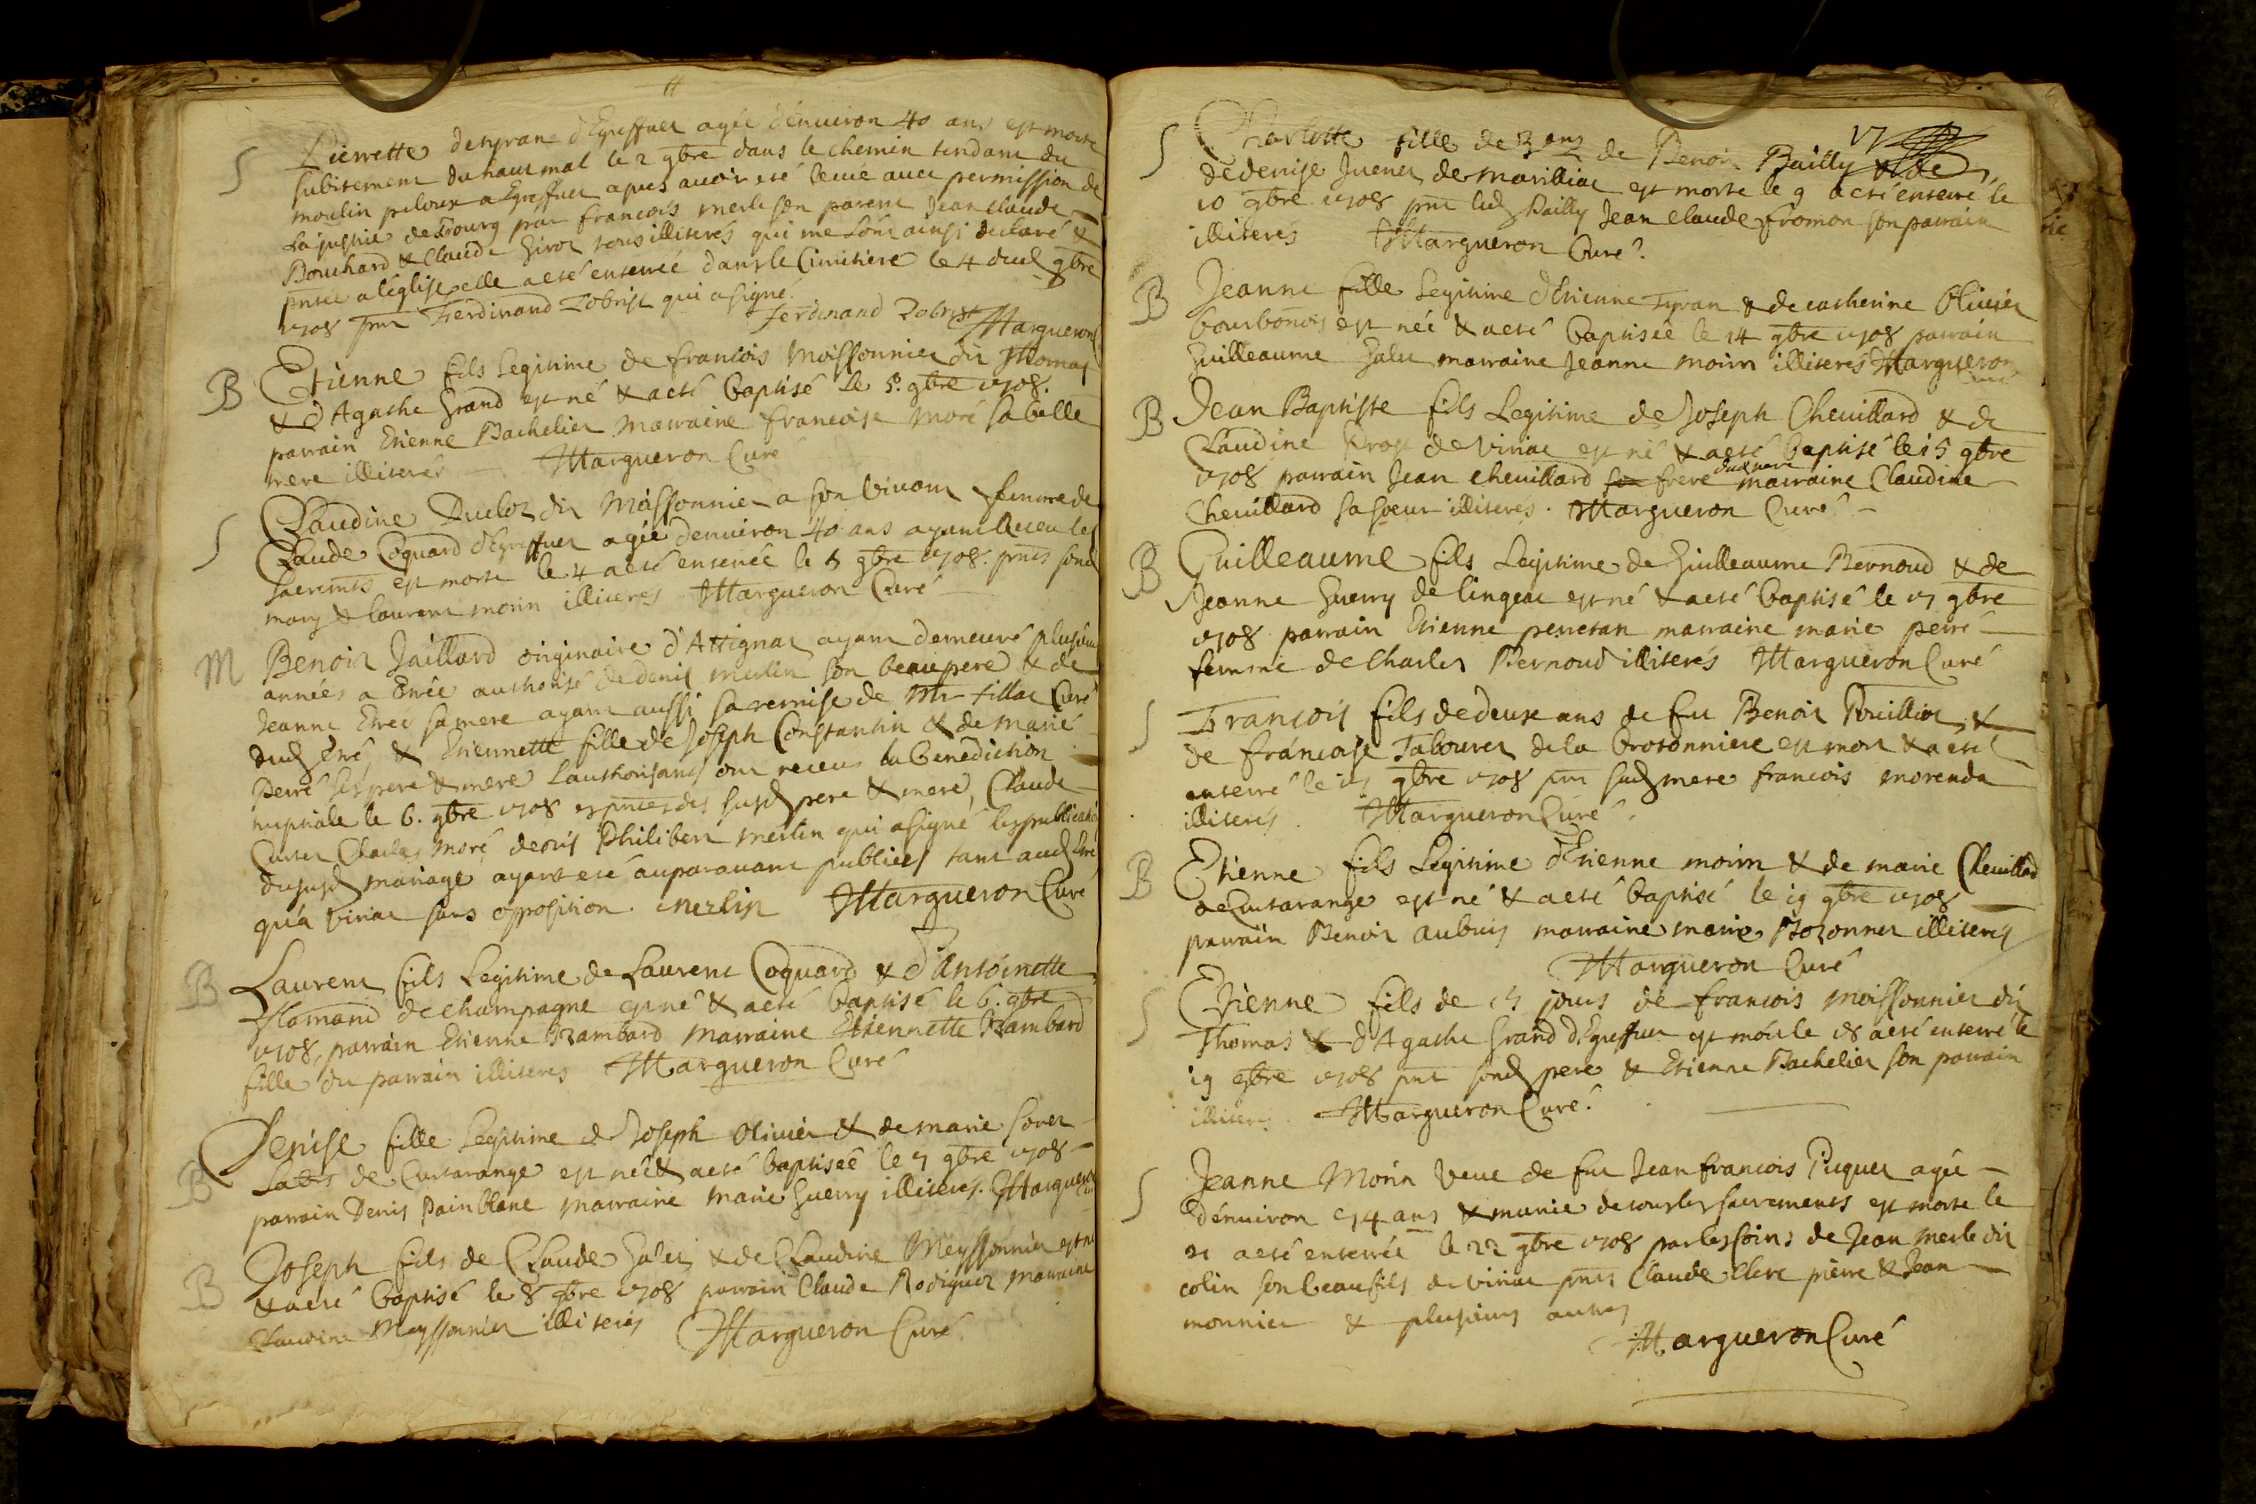 S Pierrette detyrane d'Egreffuer agée d'environ 40 ans est morte
subitement du haut mal le 2 gbre dans le chemin tendant du
moulin peloux a Egreffuer apres avoir eté levée avec permission de
La justice de Bourg par francois merle son parent Jean Claude
Bouchard & Claude Girox tous illiterés qui me l'ont ainsi declaré &
pntée a l'église elle a eté enterrée dans le Cimitiere le 4 dud gbre
1708 pnt Ferdinand Zobrist qui a signé.
ferdinand Zobrist Margueron
B Etienne fils Legitime de francois Moissonnier dit Thomas
& d'Agathe Grand est né & a eté baptisé le 5. gbre 1708.
parrain Etienne Bachelier Marraine francoise moré sa belle
mere illiterés Margueron Curé
S Claudine Ducloz dit Moissonnier a son vivant femme de
Claude Coquard d'Egreffuer agée denviron 40 ans ayant Receu les
sacremts est morte le 4 a eté enterrée le 5 gbre 1708. pnts sond
mary & laurent morin illiteres Margueron Curé
M Benoit Jaillard originaire d'Attignat ayant demeuré plusieurs
années a Etréé authorisé de denis merlin son beaupere & de
Jeanne Etréé sa mere ayant aussi sa remise de Mr tillat Curé
dud Etré, & Etiennette fille de Joseph Constantin & de marie
Perré ses pere & mere l'authorisants ont receus la Benediction
nuptiale le 6. gbre 1708 es pnces des susd pere & mere, Claude
Curtet Charles moré denis Philibert merlin qui a signé les publicatõs
du susd mariage ayant eté auparavant publiées tant aud Etré
qu'a viriat sans opposition. merlin Margueron Curé
B Laurent fils Legitime de Laurent Coquard & d'Antoinette
flamand de champagne est né & a eté baptisé le 6. gbre
1708, parrain Etienne Brambard Marraine Etiennette Brambard
fille du parrain illiteres Margueron Curé
B Denise fille Legitime de Joseph Olivier & de marie foret
Lates de Curtarange est née & a eté baptiseé le 7 gbre 1708
parrain Denis Painblanc Marraine Marie Guerry illiteres. Margueron
B Joseph fils de Claude & de Claudine Meyssonnier est né
& a eté baptisé le 8 gbre 1708 parrain Claude Rodiguet Marraine
Claudine Meyssonnier illiteres Margueron Curé
17
S Charlotte fille de 3 ans de Benoit Bailly & de
de denise Juenet de marilliat est morte le 9 a eté enterré le
10 gbre 1708 pnt lud Bailly Jean Claude fromon son parrain
illiterés Margueron Curé
B Jeanne fille Legitime d'Etienne Tyran & de catherine Olivier
bourbonois est née & a eté baptisée le 14 gbre 1708 parrain
Guilleaume Jalet marraine Jeanne moirin illiterés Margueron
Curé
B Jean Baptiste fils Legitime de Joseph Chevillard & de
Claudine Prost de Viriat est né & a eté baptisé le 15 gbre
1708 parrain Jean chevillard frere dud pere marraine Claudine
Chevillard sa soeur illiterés. Margueron Curé
B Guilleaume fils Legitime de Guilleaume Bernoud & de
Jeanne Guerry de lingeat est né & a eté baptisé le 17 gbre
1708 parrain Etienne perretan marraine marie perré
femme de Charles Bernoud illiterés Margueron Curé
S Francois fils de deux ans de feu Benoit Povilliot &
de francoise Tabouret de la Crotonniere est mort & a eté
enterré le 17 gbre 1708 pnt sad mere francois morenda
illiterés Margueron Curé.
B Etienne fils Legitime d'Etienne moirin & de marie Chevillard
de Curtarange est né & a eté baptisé le 19 gbre 1708
parrain Benoit aubuis marraine marie Bozonnet illiteres
Margueron Curé
S Etienne fils de 15 jours de francois moissonnier dit
Thomas & d'Agathe Grand d'Egreffuer est mort le 18 a eté enterré le
19 gbre 1708 pnt sond pere & Etienne Bachelier son parrain
illiteres. Margueron Curé.
S Jeanne Morin veue de feu Jean francois Piquet agée
d'environ 74 ans & munie de tous les sacrements est morte le
21 a eté enterrée le 22 gbre 1708 par les soins de Jean merle dit
colin son beaufils de viriat pnts Claude Clerc pierre & Jean
monnier & plusieurs autres
Margueron Curé